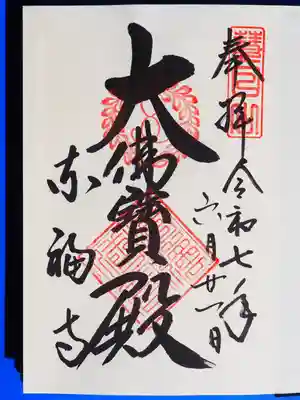 慧日山
奉拝 令和七年
六月廿一日
大佛寶殿
東福寺